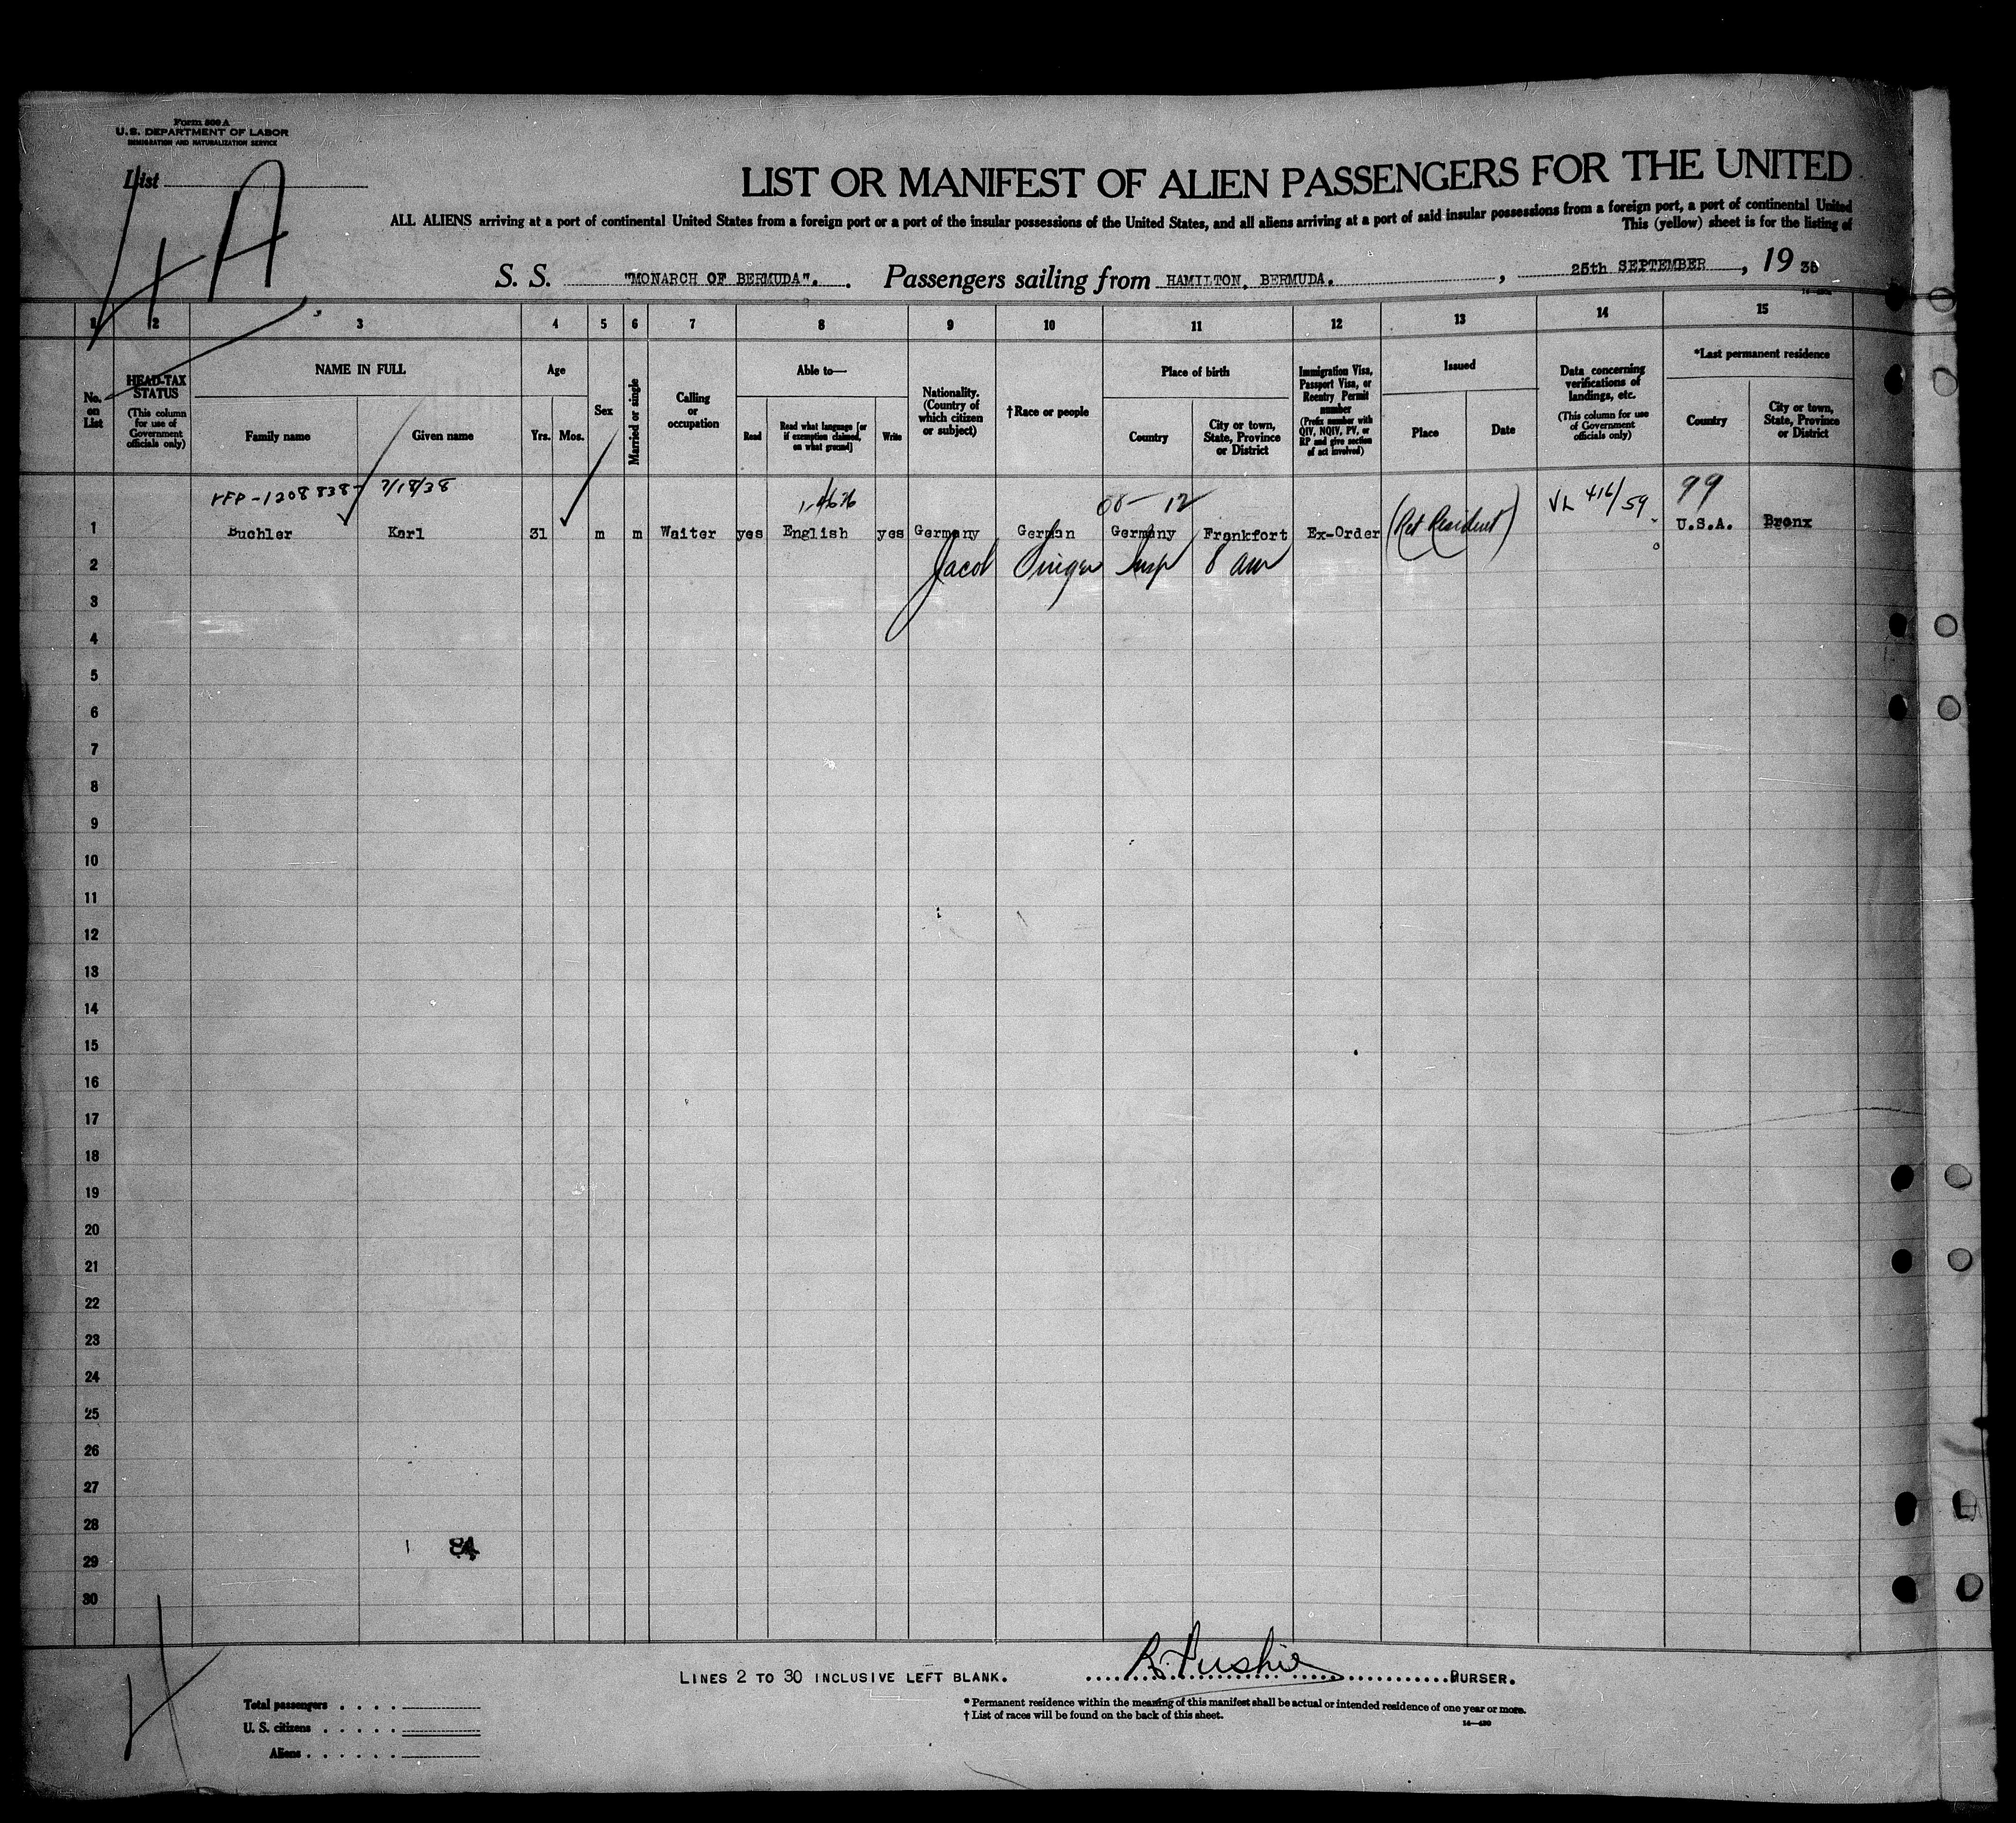 Form 500 A
U.S. DEPARTMENT OF LABOR
IMMIGRATION AND NATURALIZATION SERVICE
List
4A
LIST OR MANIFEST OF ALIEN PASSENGERS FOR THE UNITED
ALL ALIENS arriving at a port of continental United States from a foreign port or a port of the insular possessions of the United States, and all aliens arriving at a port of said insular possessions from a foreign port, a port of continental United
This (yellow) sheet is for the listing of
S. S. "MONARCH OF BERMUDA". Passengers sailing from HAMILTON, BERMUDA. , 25th SEPTEMBER , 19 36
1 2 3 4 5 6 7 8 9 10 11 12 13 14 15
No. on List
HEAD-TAX STATUS (This column for use of Government officials only)
NAME IN FULL
Family name Given name
Age
Yrs. Mos.
Sex
Married or single
Calling or occupation
Able to—
Read Read what language [or if exemption claimed, on what ground] Write
Nationality. (Country of which citizen or subject)
†Race or people
Place of birth
Country City or town, State, Province or District
Immigration Visa, Passport Visa, or Reentry Permit number (Prefix number with QIV, NQIV, PV, or RP and give section of act involved)
Issued
Place Date
Data concerning verifications of landings, etc. (This column for use of Government officials only)
*Last permanent residence
Country City or town, State, Province or District
1208838 7/18/38 VL 416/59 99
1 Buchler Karl 31 m m Waiter yes English yes Germany German Germany Frankfort Ex-Order (Ret Resident) U.S.A. Bronx
2 Jacob Singer Insp 8 am
3
4
5
6
7
8
9
10
11
12
13
14
15
16
17
18
19
20
21
22
23
24
25
26
27
28
29
30
LINES 2 TO 30 INCLUSIVE LEFT BLANK. PURSER.
Total passengers
U. S. citizens
Aliens
* Permanent residence within the meaning of this manifest shall be actual or intended residence of one year or more.
† List of races will be found on the back of this sheet.
14—430